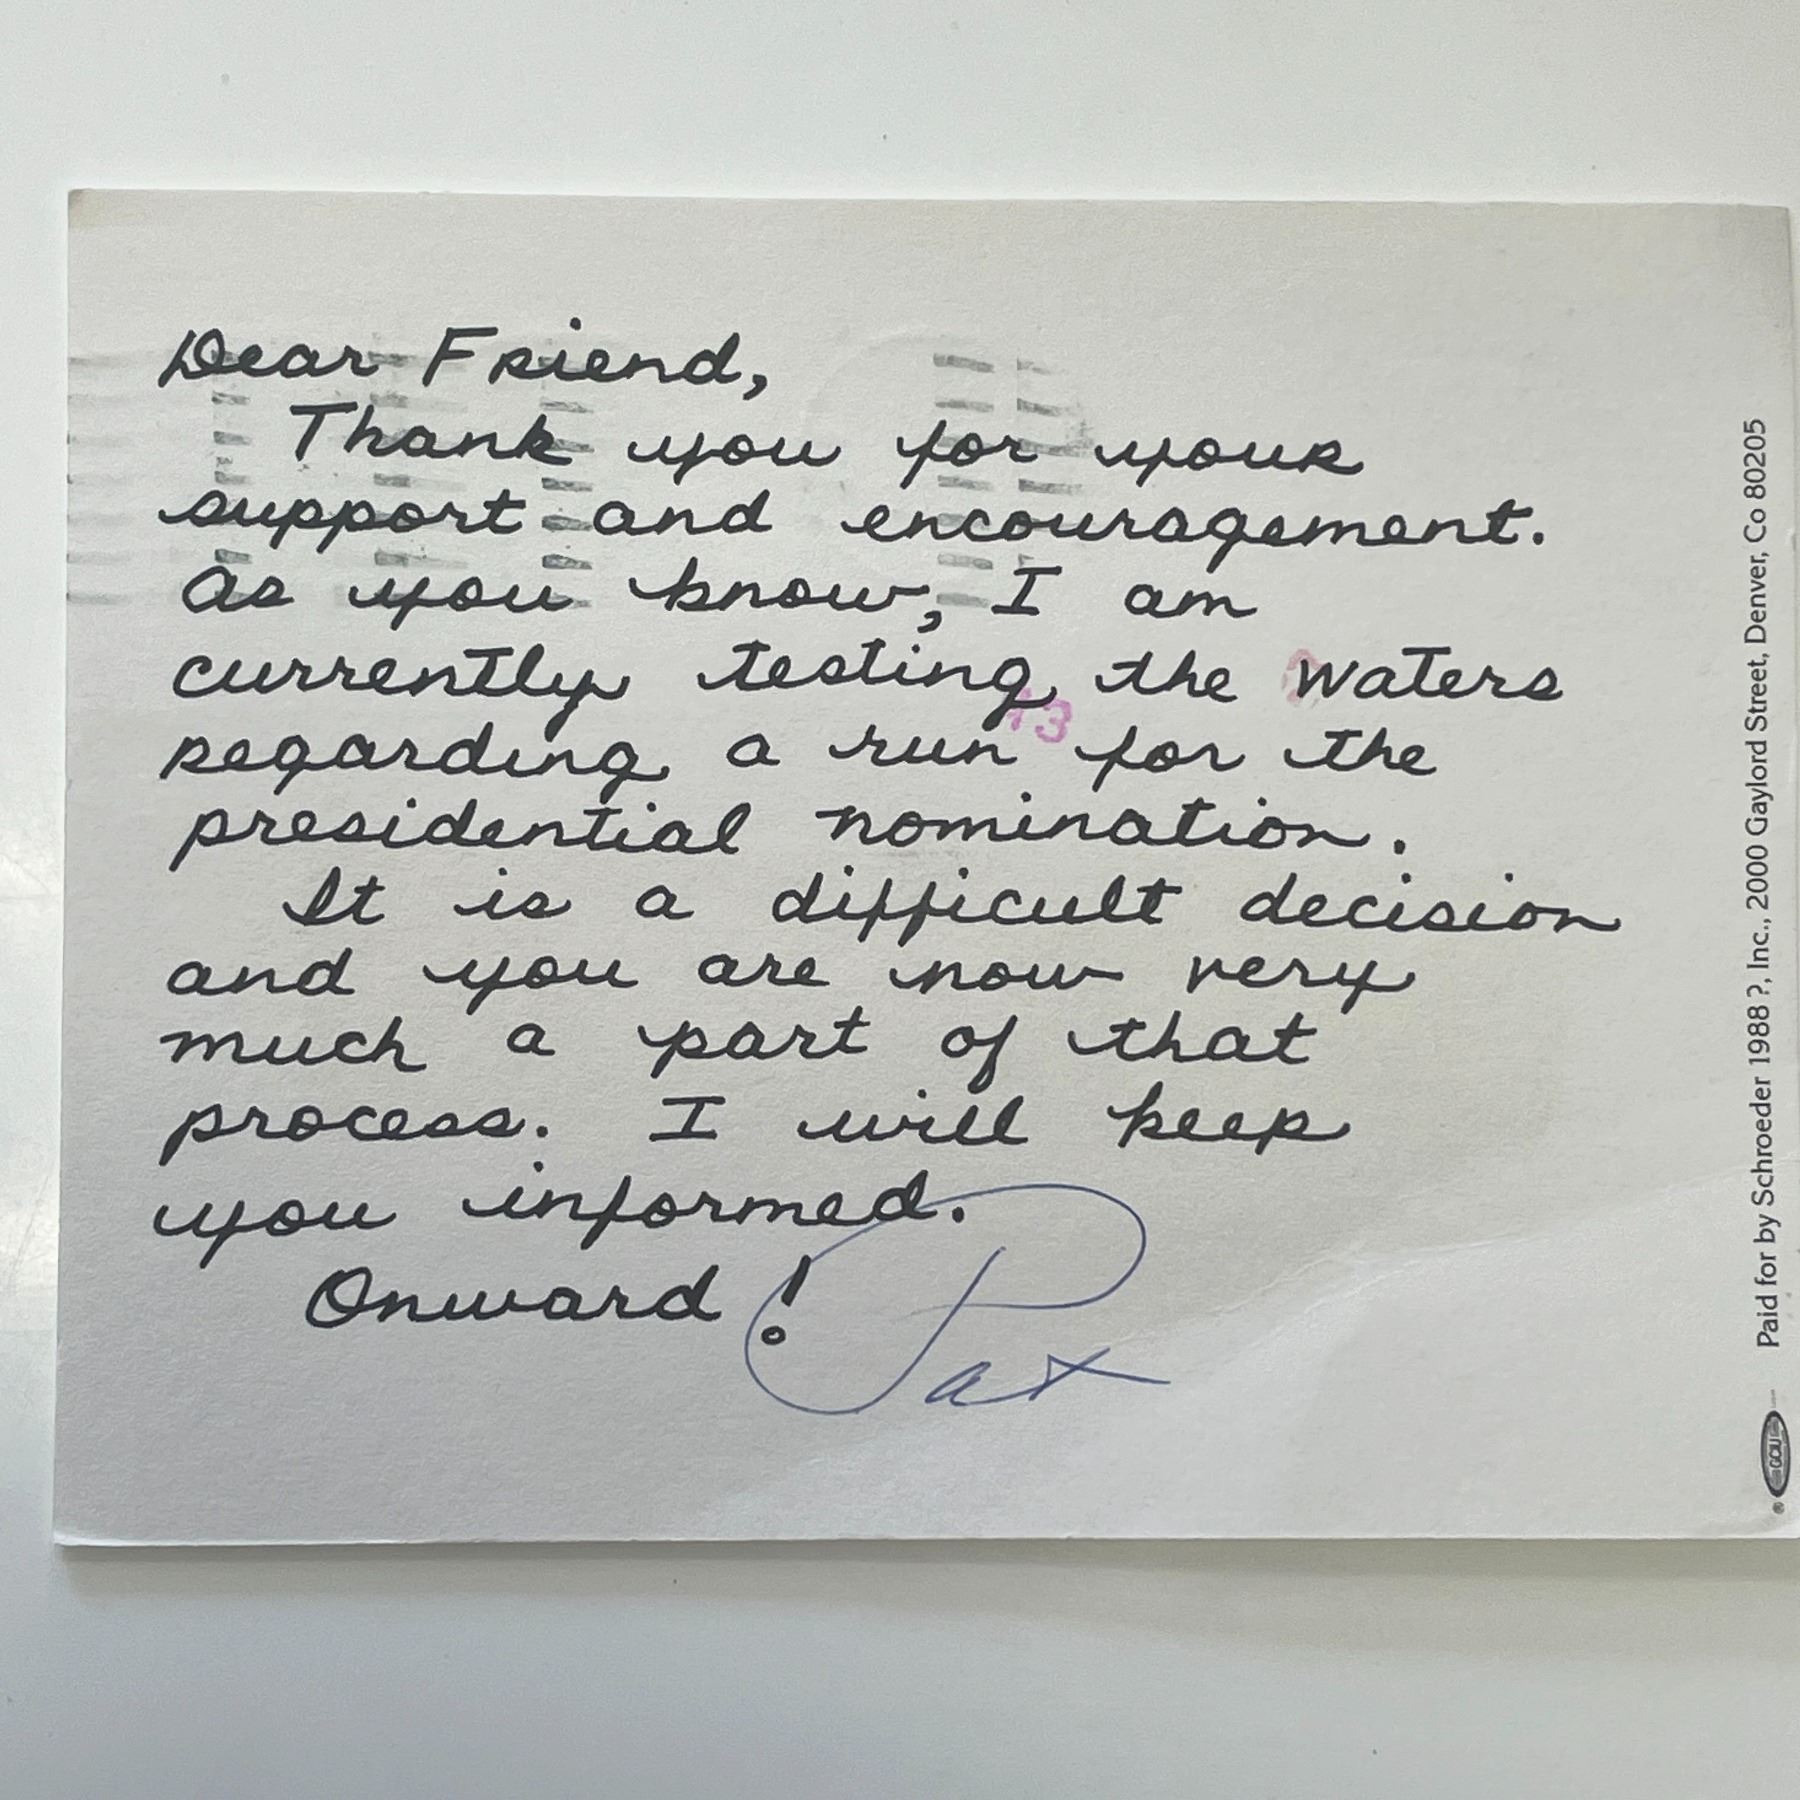 Dear Friend,
Thank you for your
support and encouragement.
As you know, I am
currently testing the waters
regarding a run for the
presidential nomination.
It is a difficult decision
and you are now very
much a part of that
process. I will keep
you informed.
Onward!
Pat
Paid for by Schroeder 1988?, Inc., 2000 Gaylord Street, Denver, Co 80205
GCIU